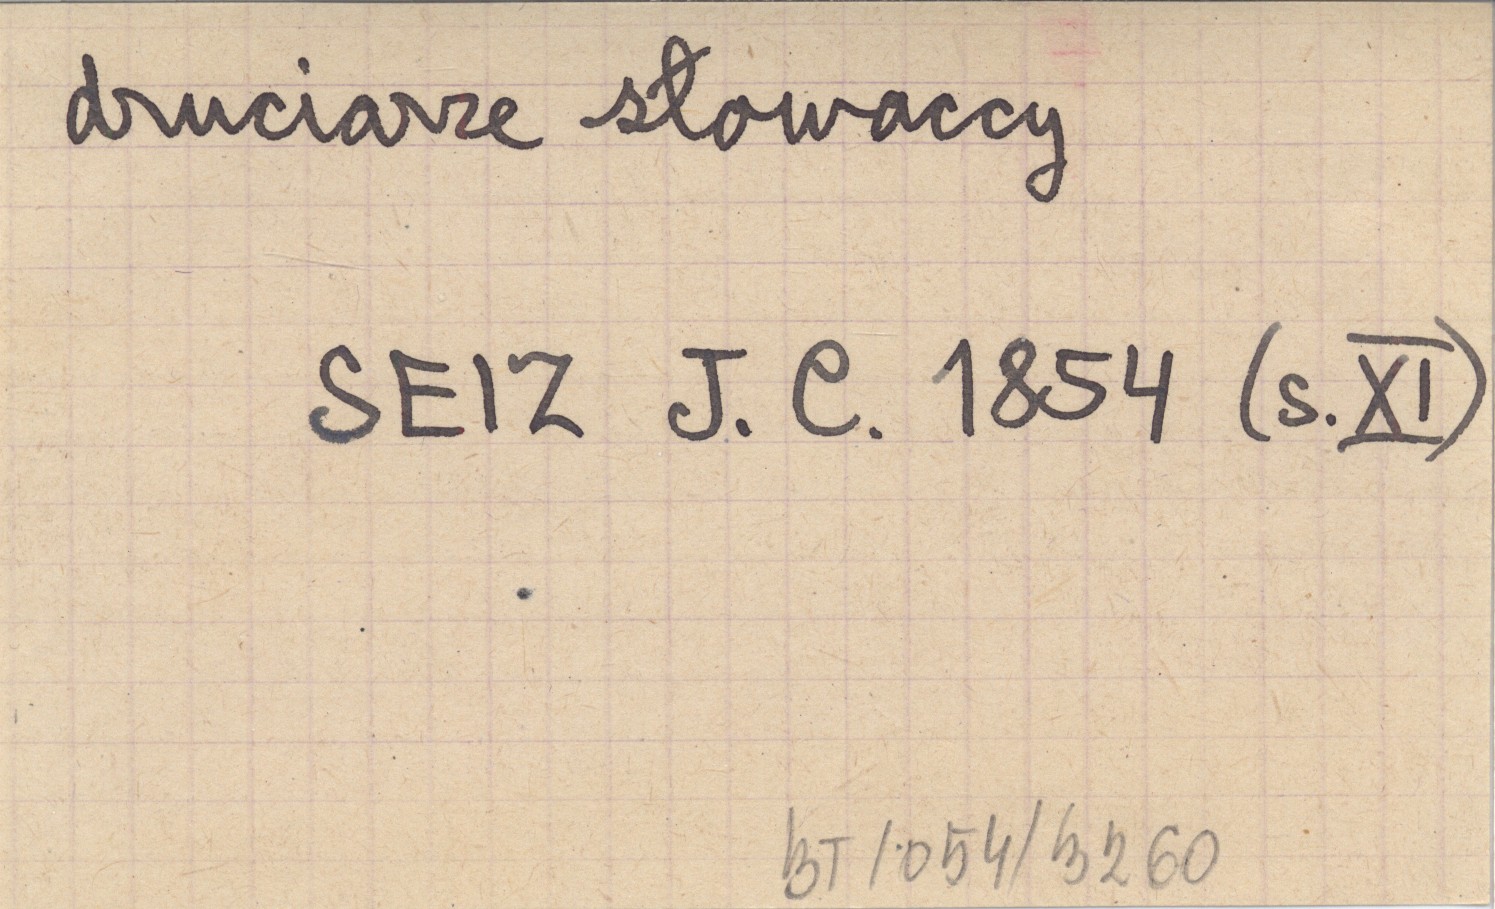 druciarze słowaccy
SEIZ J. C. 1854 (s. XI)
BT/054/3260